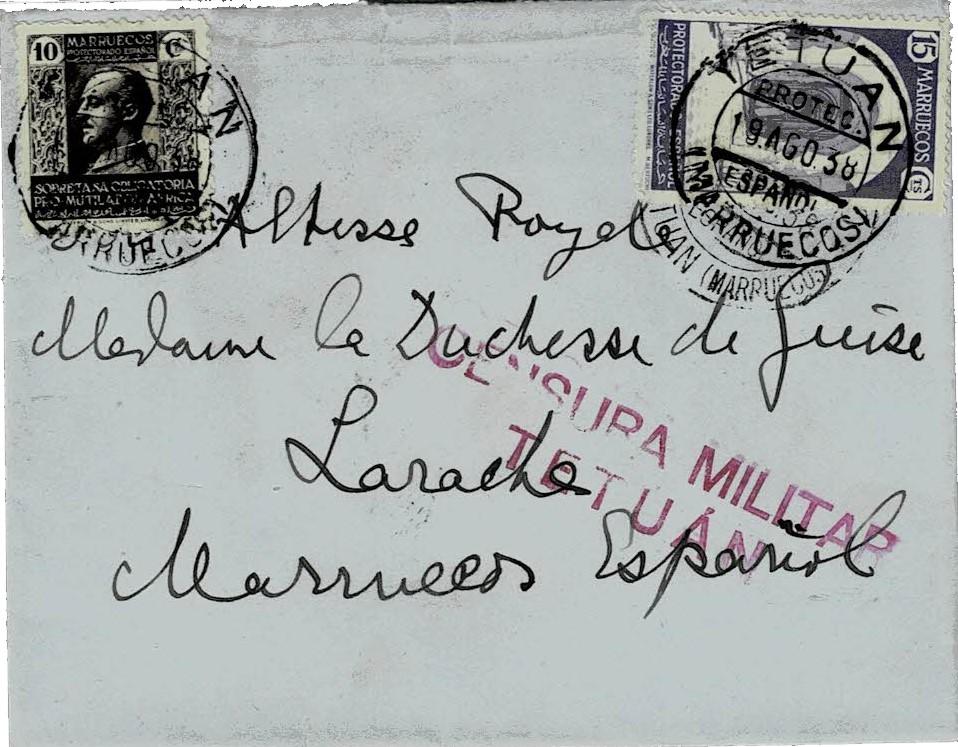 10 MARRUECOS Cs
PROTECTORADO ESPAÑOL
SOBRETASA OBLIGATORIA
PRO-MUTILADOS AFRICA
MARRUECOS
PROTECTORADO ESPAÑOL
15 MARRUECOS Cts
TETUAN
PROTEC.
19.AGO.38
ESPAÑOL
(MARRUECOS)
TETUAN (MARRUECOS)
Altesse Royale
Madame la Duchesse de Guise
Larache
Marruecos Español
CENSURA MILITAR
TETUÁN